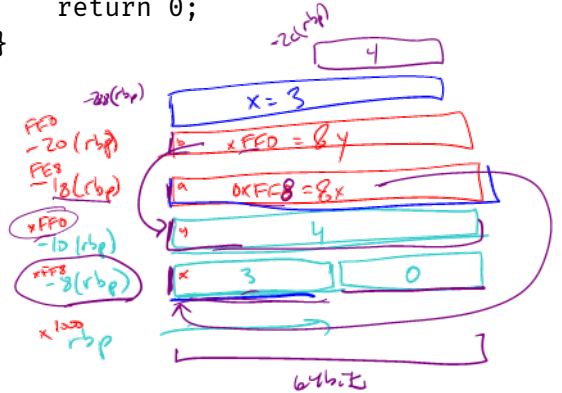 return 0;
}
-20(rbp)
4
-28(rbp)
x = 3
FE0
-20(rbp)
b
xFF0 = &y
FE8
-18(rbp)
a
0xFF8 = &x
xFF0
-10(rbp)
y
4
xFF8
-8(rbp)
x
3
0
x1000
rbp
64bit